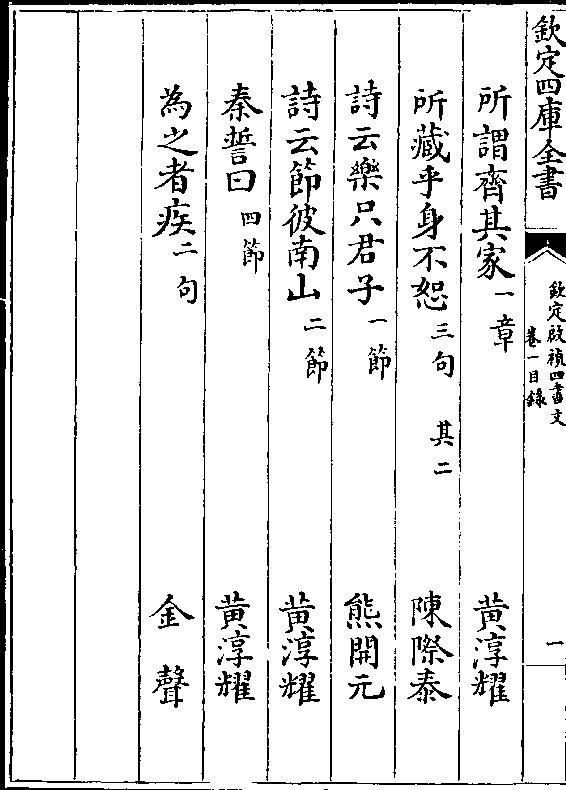 欽定四庫全書
欽定啟禎四書文
卷一目錄
一
所謂齊其家一章 黃淳耀
所藏乎身不恕三句 其二 陳際泰
詩云樂只君子一節 熊開元
詩云節彼南山二節 黃淳耀
秦誓曰四節 黃淳耀
為之者疾二句 金聲